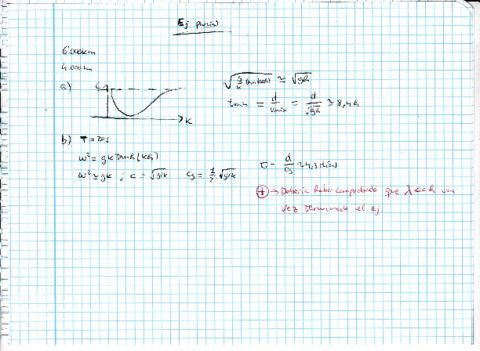 Ej
6.000km
4.000m
a)
k
√(g/k tanh(kh)) ≃ √gh
tmin = d/vmax = d/√gh ≃ 8,4h
b) T = 20s
ω² = gk tanh(kh)
ω² ≃ gk ; c = √g/k cg = 1/2 √g/k
τ = d/cg ≃ 4,3 días
⊕ → Debería haber comprobado que λ << h una
vez terminado el ej